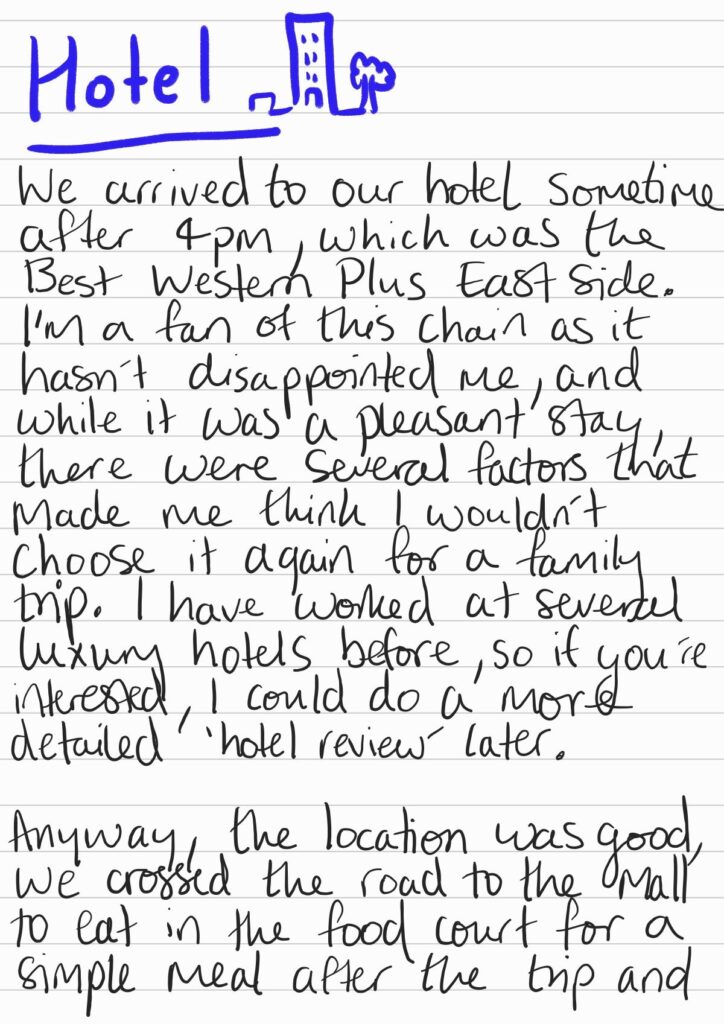 Hotel
We arrived to our hotel sometime
after 4pm, which was the
Best Western Plus East side.
I'm a fan of this chain as it
hasn't disappointed me, and
while it was a pleasant stay,
there were several factors that
made me think I wouldn't
choose it again for a family
trip. I have worked at several
luxury hotels before, so if you're
interested, I could do a more
detailed 'hotel review' later.
Anyway, the location was good,
we crossed the road to the Mall
to eat in the food court for a
simple meal after the trip and